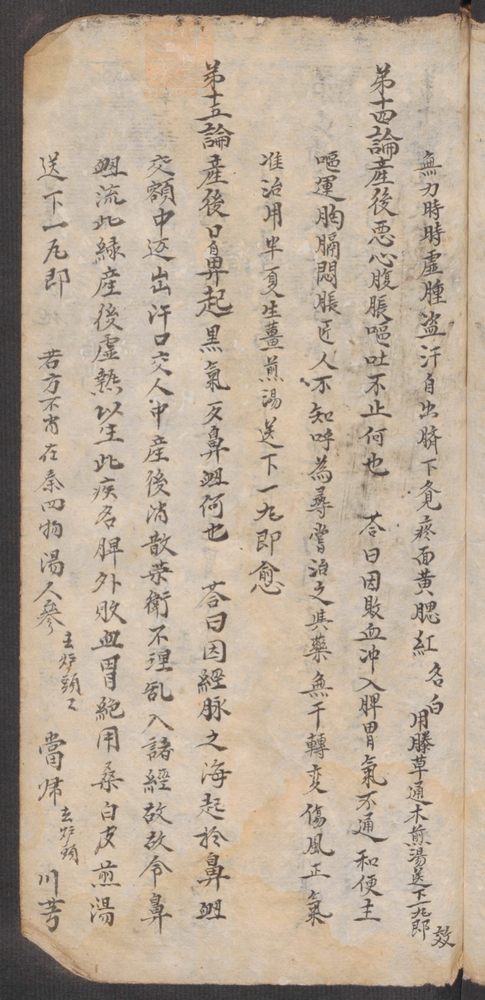 無力時時虛腫盗汗自出臍下覺疼面黃腮紅 名白 用滕草通木煎湯送下一丸即效
第十四論產後惡心腹脹嘔吐不止何也 荅曰因敗血冲入脾胃氣不通和便主
嘔運胸膈悶脹匠人不知呼為尋常治之其藥無干轉变傷風正氣
准治用半夏生薑煎湯送下一丸即愈
第十五論產後口鼻起黑氣及鼻衄何也 荅曰因經脉之海起於鼻衄
交額中还出汗口交人中產後消散荣衛不理乱入諸經故故令鼻
衄流此緣產後虛熱以生此疾名脾外敗血胃絕用桑白皮煎湯
送下一丸即 若方不宵在秦四物湯人參去炉頭 當帰去炉頭 川芎